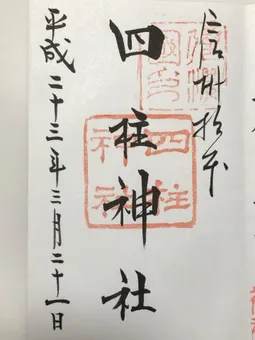 信州松本
四柱神社
四柱神社
平成二十三年三月二十一日